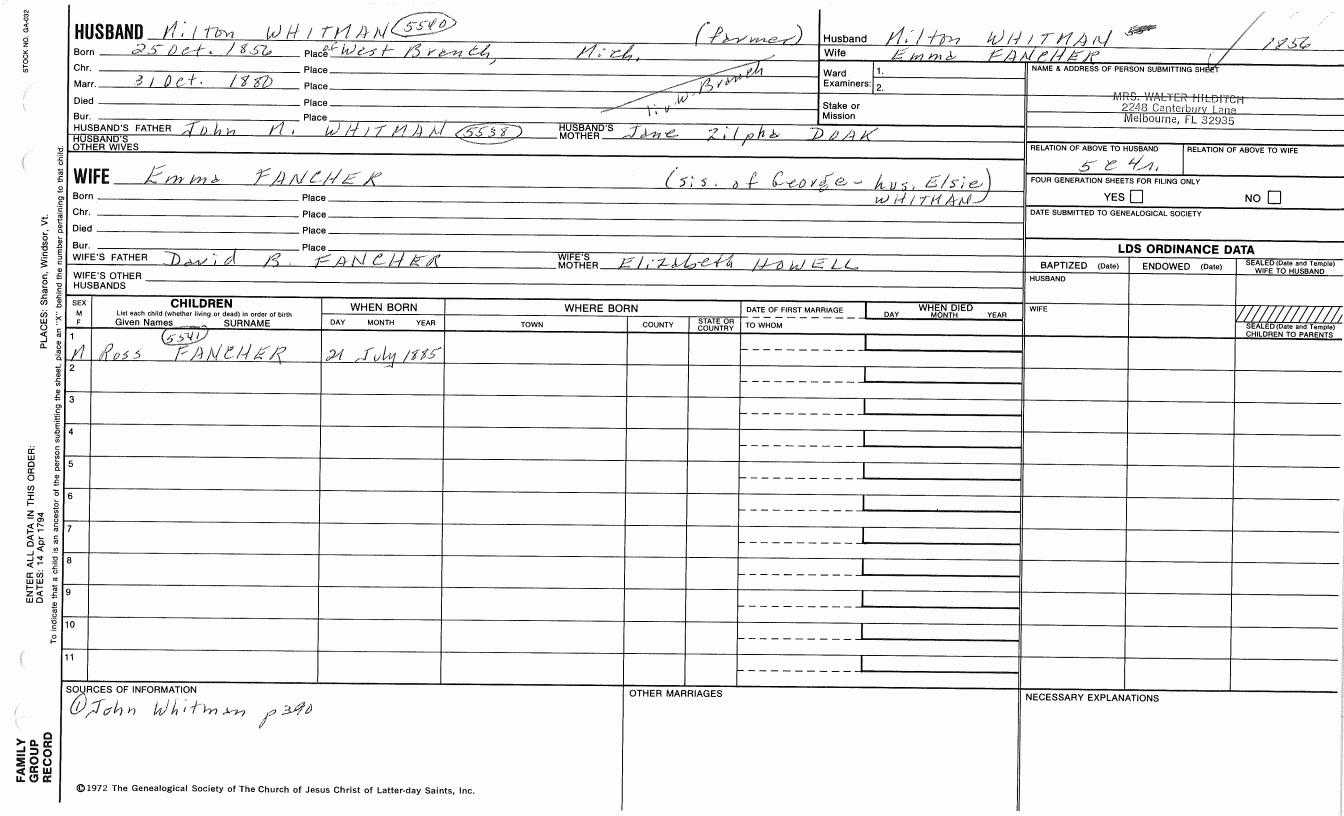 STOCK NO. GA-032
HUSBAND Milton WHITMAN (5540) (farmer)
Born 25 Oct. 1856 Place of West Branch, Mich.
Chr. Place
Marr. 31 Oct. 1880 Place
liv. W. Branch
Died Place
Bur. Place
HUSBAND'S FATHER John M. WHITMAN (5538) HUSBAND'S MOTHER Jane Zilpha DOAK
HUSBAND'S OTHER WIVES
WIFE Emma FANCHER (sis. of George - hus. Elsie WHITMAN)
Born Place
Chr. Place
Died Place
Bur. Place
WIFE'S FATHER David B. FANCHER WIFE'S MOTHER Elizabeth HOWELL
WIFE'S OTHER HUSBANDS
Husband Milton WHITMAN 1856
Wife Emma FANCHER
Ward Examiners: 1.
2.
Stake or Mission
NAME & ADDRESS OF PERSON SUBMITTING SHEET
MRS. WALTER HILDITCH
2248 Canterbury Lane
Melbourne, FL 32935
RELATION OF ABOVE TO HUSBAND RELATION OF ABOVE TO WIFE
5 C 4 r.
FOUR GENERATION SHEETS FOR FILING ONLY
YES NO
DATE SUBMITTED TO GENEALOGICAL SOCIETY
LDS ORDINANCE DATA
BAPTIZED (Date) ENDOWED (Date) SEALED (Date and Temple) WIFE TO HUSBAND
HUSBAND
WIFE
SEALED (Date and Temple) CHILDREN TO PARENTS
SEX M F
CHILDREN
List each child (whether living or dead) in order of birth
Given Names SURNAME
WHEN BORN
DAY MONTH YEAR
WHERE BORN
TOWN COUNTY STATE OR COUNTRY
DATE OF FIRST MARRIAGE
TO WHOM
WHEN DIED
DAY MONTH YEAR
1 M Ross FANCHER (5541) 21 July 1885
2
3
4
5
6
7
8
9
10
11
SOURCES OF INFORMATION
① John Whitman p 390
OTHER MARRIAGES
NECESSARY EXPLANATIONS
©1972 The Genealogical Society of The Church of Jesus Christ of Latter-day Saints, Inc.
FAMILY GROUP RECORD
ENTER ALL DATA IN THIS ORDER:
DATES: 14 Apr 1794
PLACES: Sharon, Windsor, Vt.
To indicate that a child is an ancestor of the person submitting the sheet, place an "X" behind the number pertaining to that child.